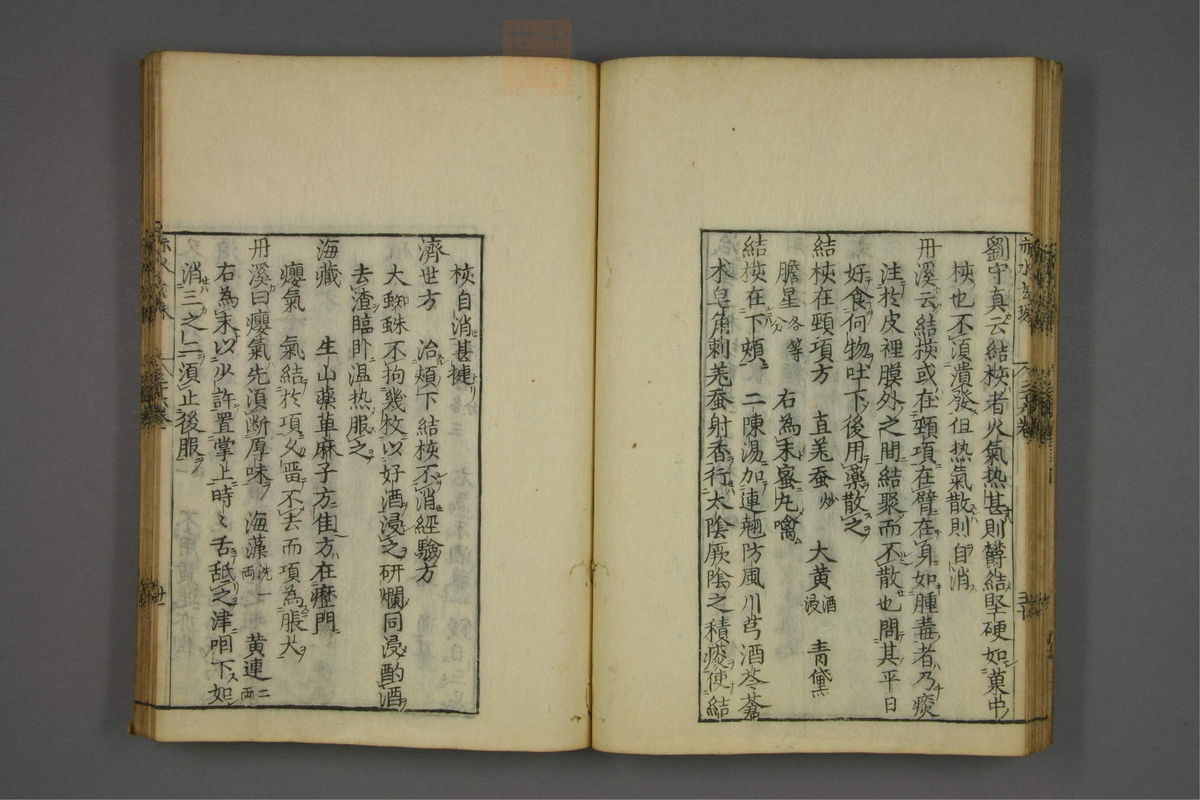 劉守真云結核者火氣热甚則鬱結堅硬如菓中
核也不須潰發但热氣散則自消
丹溪云結核或在頸項在臂在身如腫毒者乃痰
注於皮裡膜外之間結聚而不散也問其平日
好食何物吐下後用藥散之
結核在頸項方　直羗蚕炒　大黄酒浸　青黛
膽星各等分　右為末蜜丸噙
結核在下頰　二陳湯加連翹防風川芎酒芩蒼
朮皂角刺羗蚕射香行太陰厥陰之積痰使結
核自消甚捷
濟世方　治頰下結核不消經驗方
大蜘蛛不拘幾枚以好酒浸之研爛同浸酌酒
去渣臨卧温热服之
海藏　生山藥萆麻子方佳方在瘂門
癭氣　氣結於項久畱不去而項為脹大
丹溪曰癭氣先須断厚味　海藻洗一両　黄連二両
右為末以少許置掌上時〻舌舐之津咽下如
消三之二須止後服